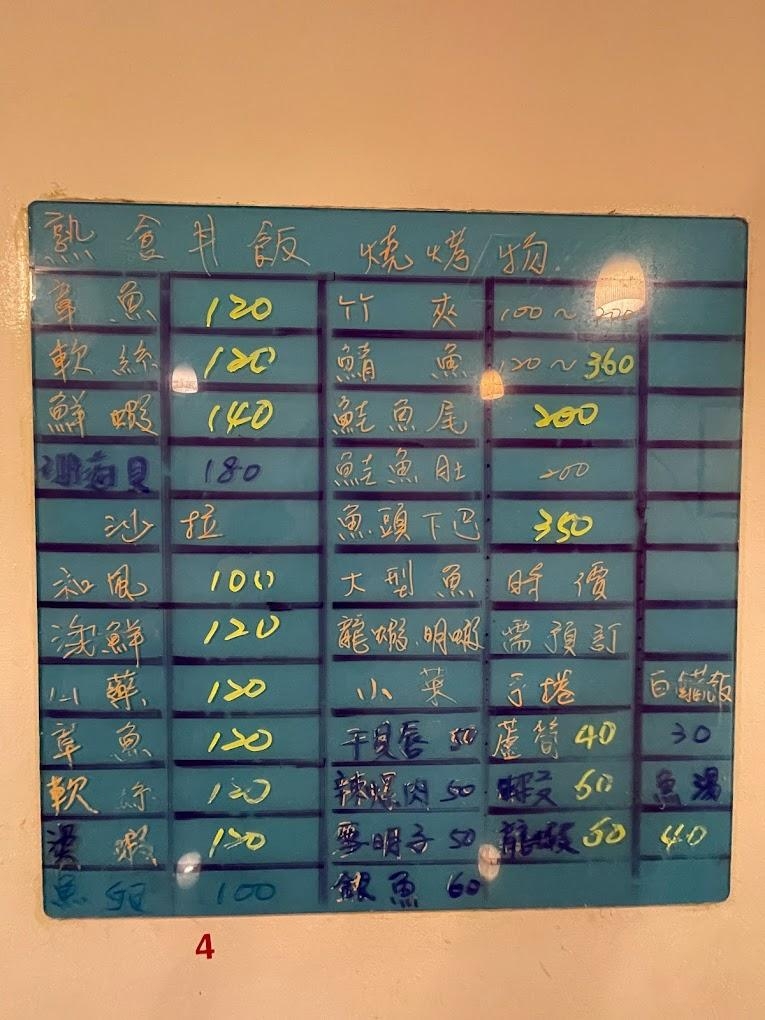 熟食丼飯 燒烤物
章魚 120 竹夾 100~
軟絲 120 鯖魚 120~360
鮮蝦 140 鮭魚尾 200
海貝 180 鮭魚肚 200
沙拉 魚頭下巴 350
和風 100 大型魚 時價
海鮮 120 龍蝦.明蝦 需預訂
山藥 120 小菜 手捲 白飯
章魚 120 干貝唇 50 蘆筍 40 30
軟絲 120 辣螺肉 50 蝦 60 魚湯
蝦 120 50 龍蝦 50 40
魚卵 100 銀魚 60
4